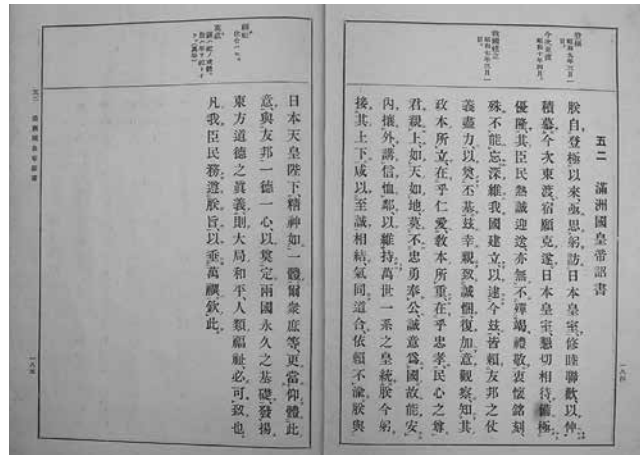 五二 滿洲國皇帝詔書
朕自登極以來、亟思躬訪日本皇室、修睦聯歡、以伸
積慕。今次東渡、宿願克遂。日本皇室、懇切相待、備極
優隆、其臣民熱誠迎送、亦無不禪竭禮敬。衷懷銘刻、
殊不能忘。深維我國建立、以逮今茲、皆賴友邦之仗
義盡力、以奠丕基。茲幸親致誠悃、復加意觀察、知其
政本所立、在乎仁愛、敎本所重、在乎忠孝、民心之尊
君親上、如天如地、莫不忠勇奉公、誠意爲國、故能安
內攘外、講信恤鄰、以維持萬世一系之皇統。朕今躬
接其上下、咸以至誠相結、氣同道合、依賴不渝。朕與
日本天皇陛下、精神如一體。爾衆庶等、更當仰體此
意、與友邦一德一心、以奠定兩國永久之基礎、發揚
東方道德之眞義。則大局和平、人類福祉、必可致也。
凡我臣民、務遵朕旨、以垂萬禩。欽此。
登極
昭和九年三月一日。
今次東渡
昭和十年四月。
我國建立
昭和七年三月一日。
一八四
一八五